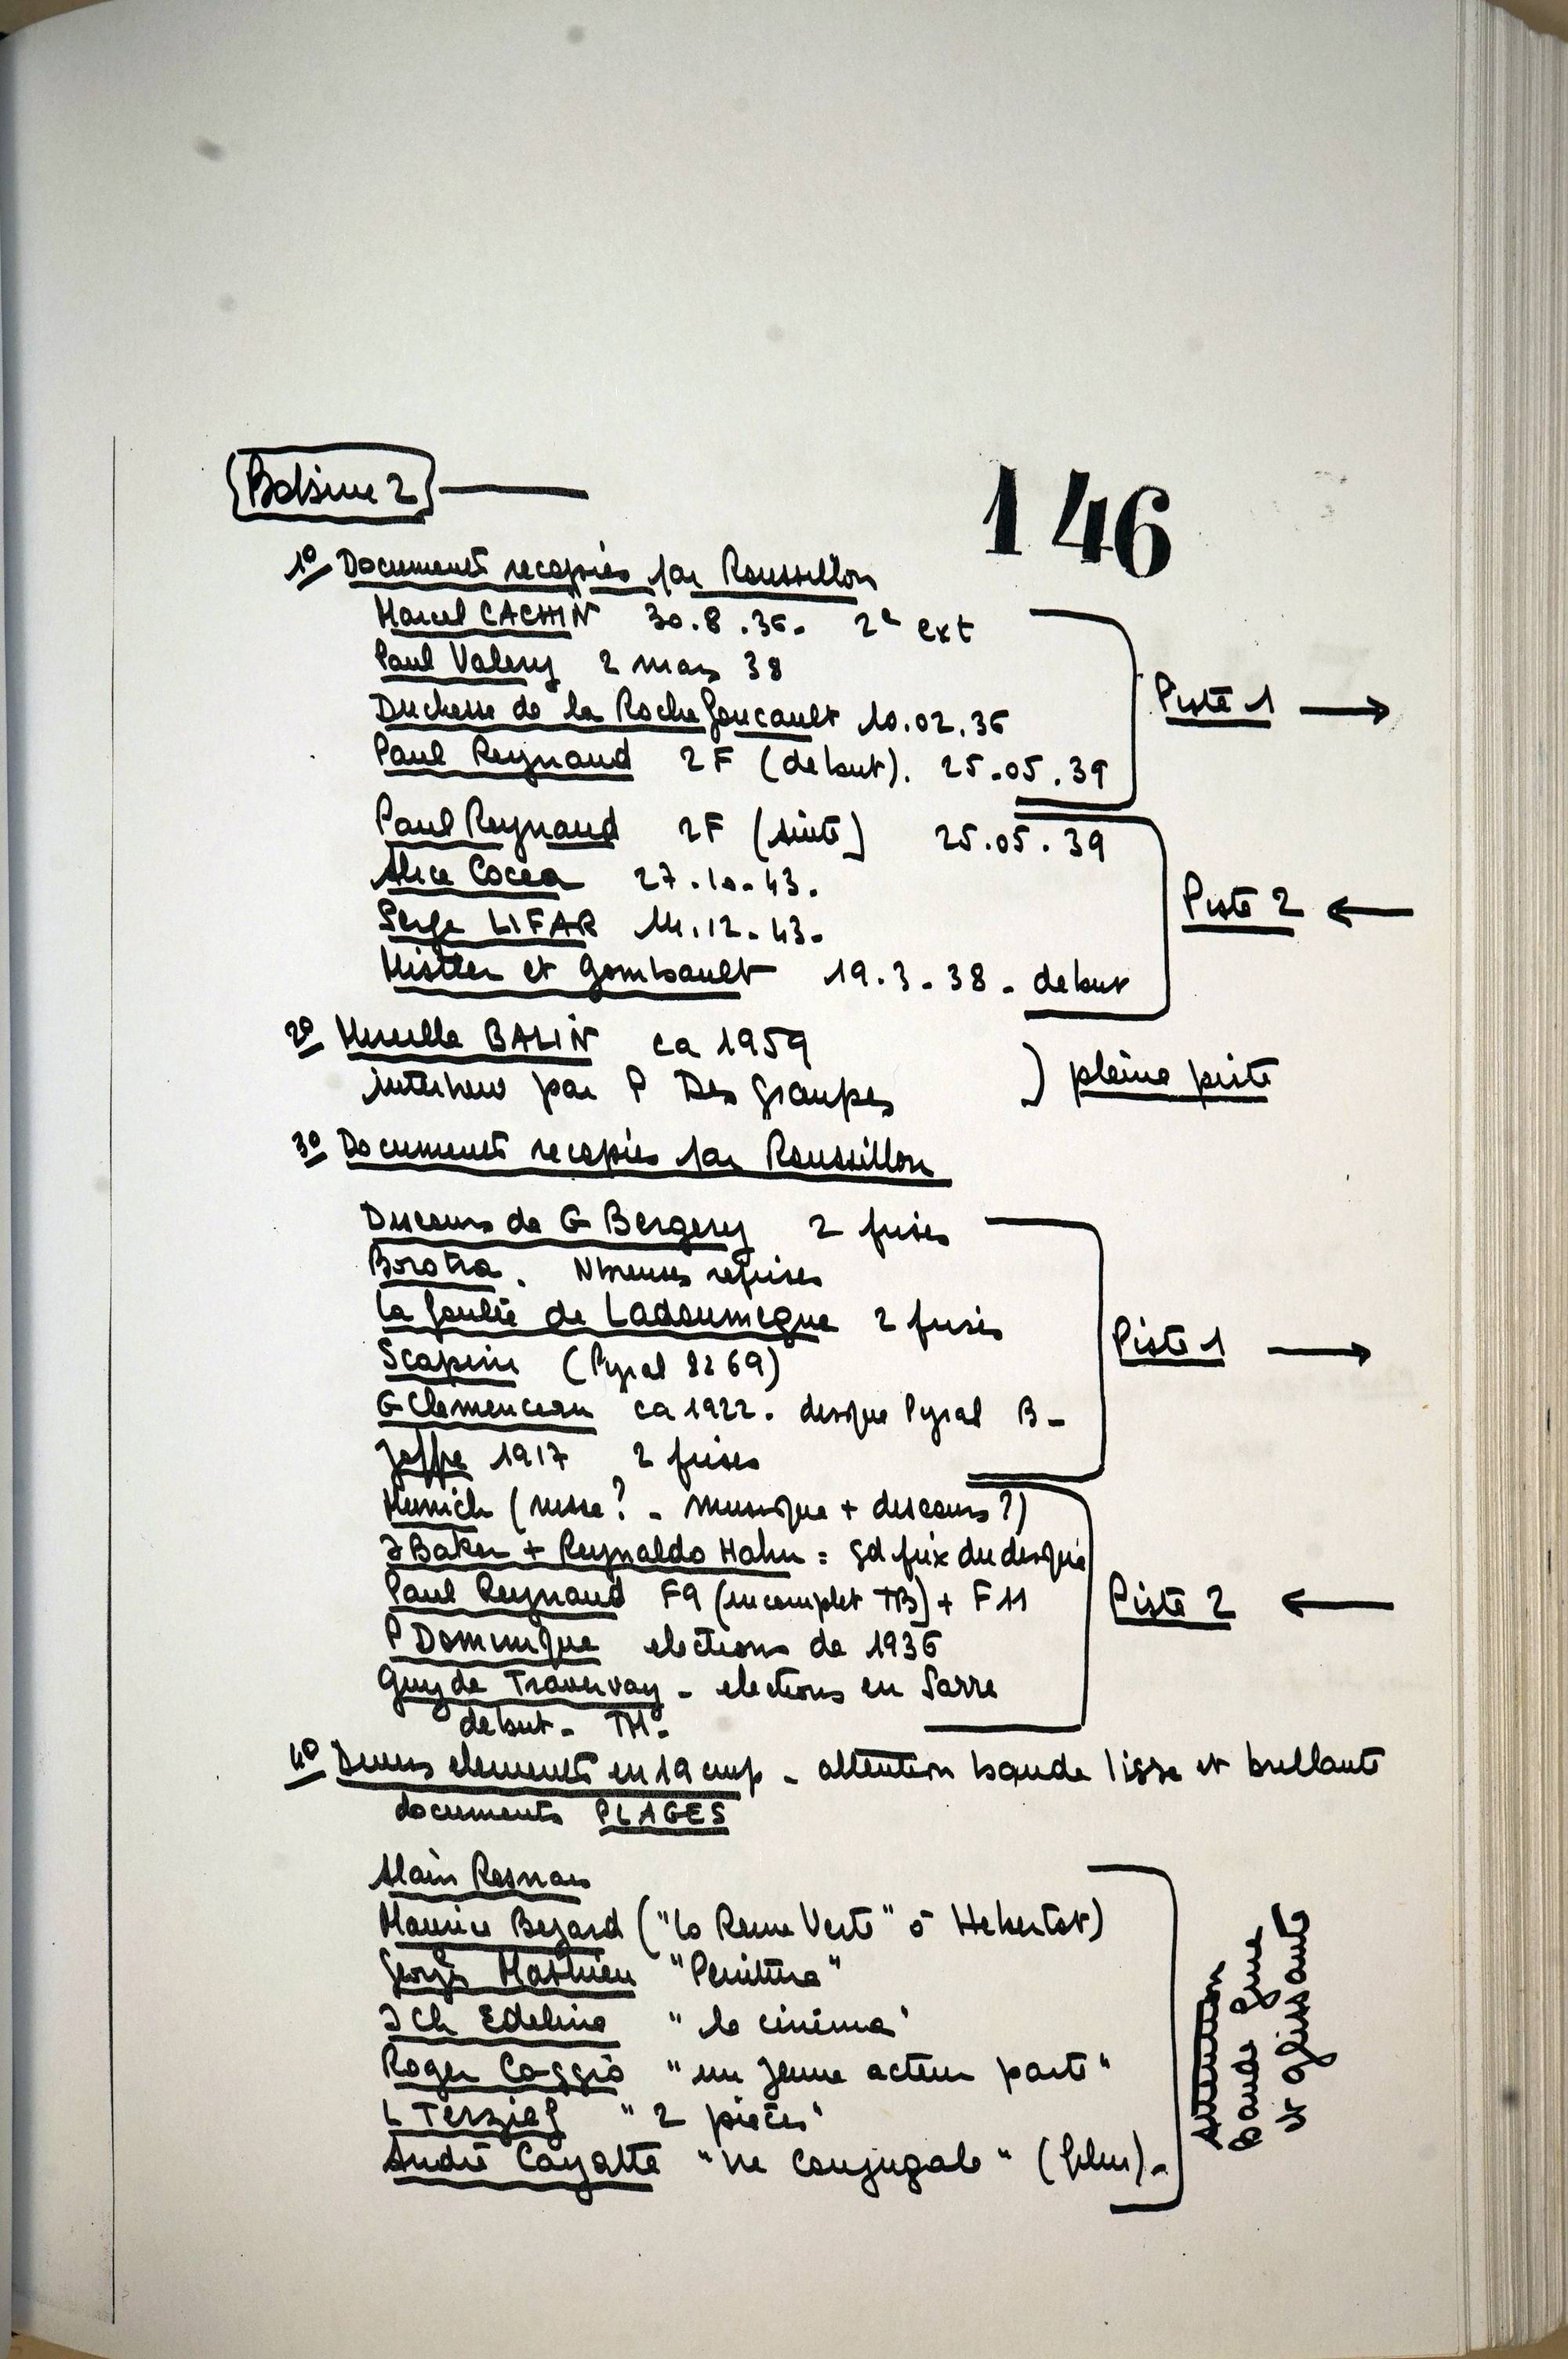 Bobine 2
146
1° Documents recopiés par Roussillon
Marcel CACHIN 30.8.36. 2e ext
Paul Valery 2 mars 38
Duchesse de la Rochefoucault 10.02.36
Paul Reynaud 2F (debut). 25.05.39
Piste 1 →
Paul Reynaud 2F (suite) 25.05.39
Alice Cocea 27.10.43.
Serge LIFAR 14.12.43.
Mistler et Gombault 19.3.38 - debut
Piste 2 ←
2° Mireille BALIN ca 1959
interview par P Des Graupes
) pleine piste
3° Documents recopiés par Roussillon
Discours de G Bergery 2 fuses
Borotra. Nbreuses reprises
La foulée de Ladoumegue 2 fuses
Scapini (Pyral 8269)
G Clemenceau ca 1922. disque Pyral B-
Joffre 1917 2 fuses
Piste 1 →
Munich (russe? - musique + discours?)
J Baker + Reynaldo Hahn = gd prix du disque
Paul Reynaud F9 (incomplet TB) + F11
P Dominique elections de 1936
Guy de Traversay - elections en Sarre
debut - TM.
Piste 2 ←
4° Divers elements en 19 cmp - attention bande lisse et brillante
documents PLAGES
Alain Resnais
Maurice Bejard ("la Reine Verte" à Hebertot)
Georges Mathieu "Peinture"
J Ch Edeline "le cinéma"
Roger Coggio "un jeune acteur parle"
L Terzief "2 pièces"
André Cayatte "Vie conjugale" (film).
attention
Bande fine
et glissante